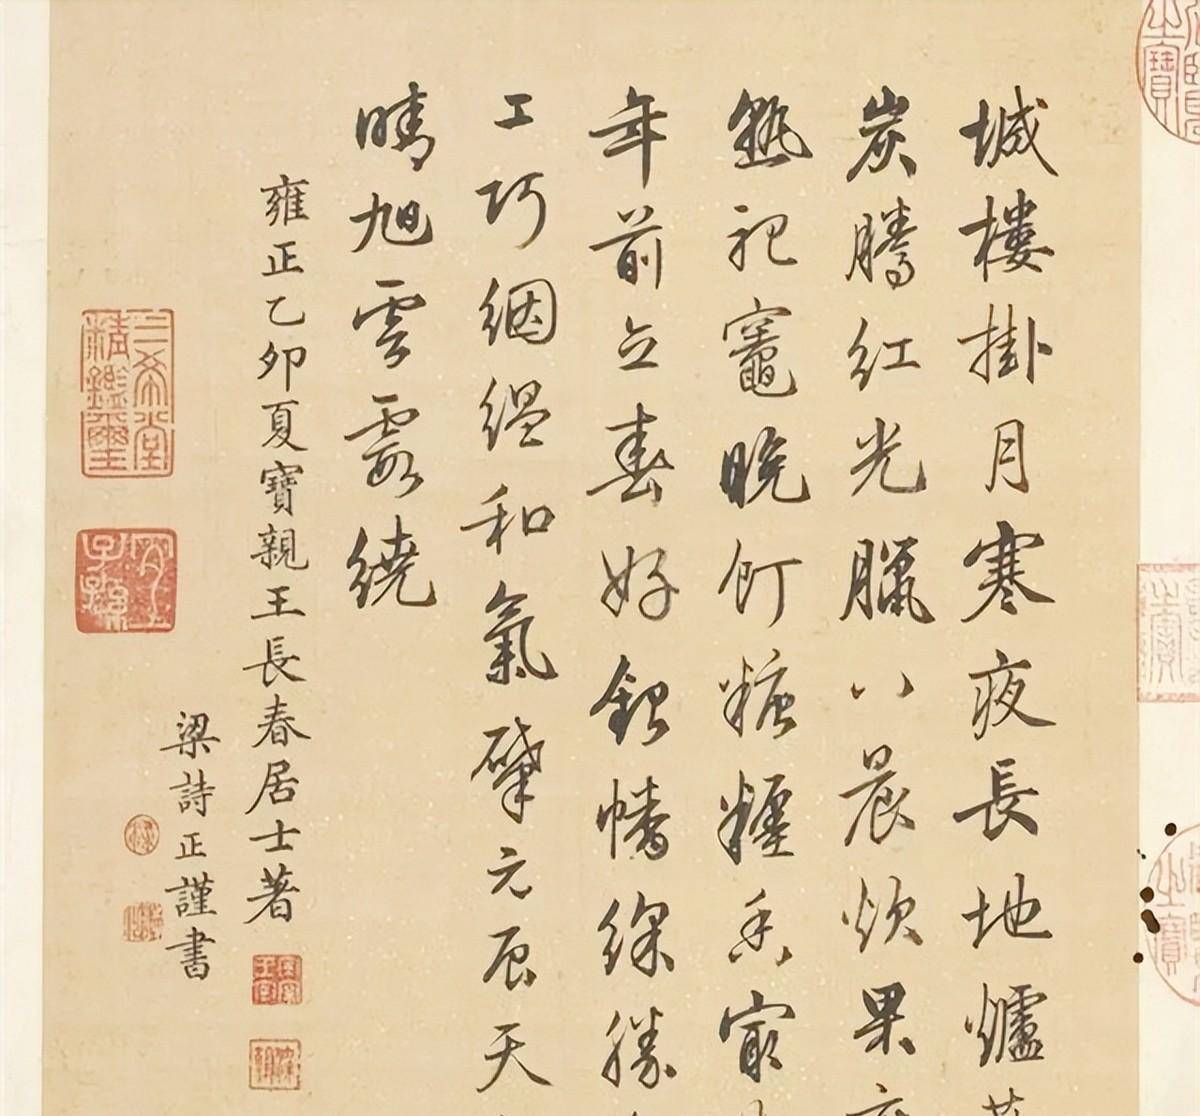 城樓掛月寒夜長地爐
炭騰紅光臘八晨炊果
甑祀竈晚飣糖香最
年前立春好銀幡綵勝
工巧絪緼和氣肇元辰天
晴旭雲霞繞
雍正乙卯夏寶親王長春居士著
梁詩正謹書
三希堂精鑑璽
宜子孫